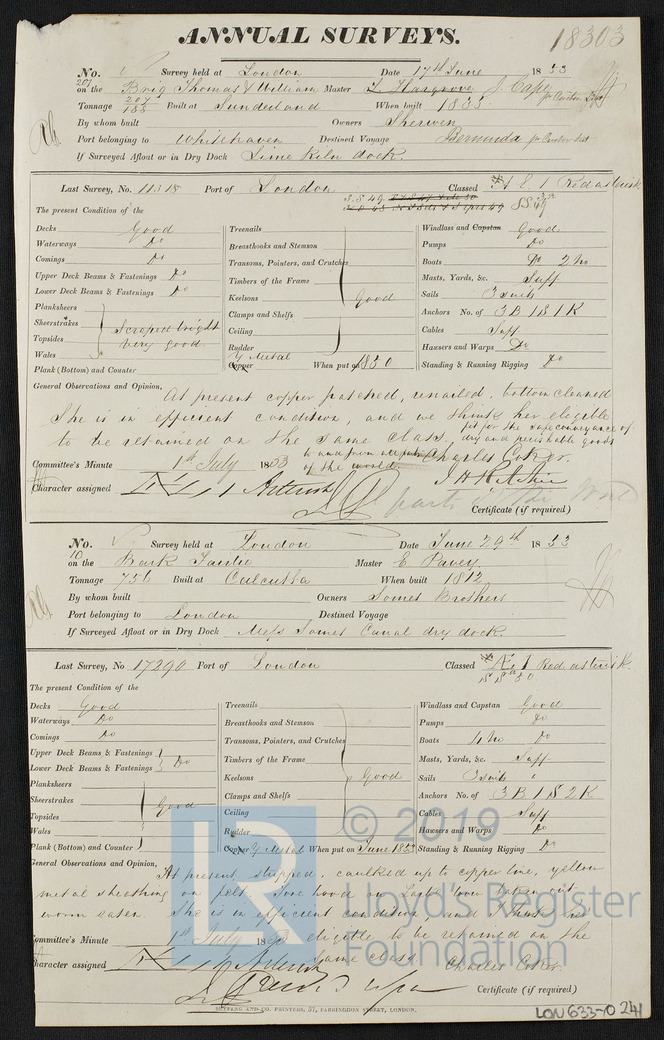 ANNUAL SURVEYS.
18303
No. Survey held at London Date 17th June 1853
201
on the Brig Thomas & William Master T. Hargrove J. Cape
Tonnage 207/183 Built at Sunderland When built 1833
By whom built Owners Sherwen
Port belonging to Whitehaven Destined Voyage Bermuda
If Surveyed Afloat or in Dry Dock Lime Kiln dock.
Last Survey, No. 11318 Port of London Classed Æ 1 Red asterisk
S.S. 49
The present Condition of the
Decks Good
Waterways Do
Comings Do
Upper Deck Beams & Fastenings Do
Lower Deck Beams & Fastenings Do
Planksheers
Sheerstrakes
Topsides
Wales
Scraped bright
very good
Plank (Bottom) and Counter
Treenails
Breasthooks and Stemson
Transoms, Pointers, and Crutches
Timbers of the Frame
Keelsons Good
Clamps and Shelfs
Ceiling
Rudder
Y Metal
Copper When put on 1850
Windlass and Capstan Good
Pumps Do
Boats 2 No Do
Masts, Yards, &c. Suff
Sails 3 suits
Anchors No. of 3 B 1 S 1 K
Cables Suff
Hawsers and Warps Do
Standing & Running Rigging Do
General Observations and Opinion, At present copper patched, renailed, bottom cleaned
She is in efficient condition, and we think her eligible
to be retained on the same class. fit for the safe conveyance of
dry and perishable goods
to and from
of the world Charles Coker.
Committee's Minute 1st July 1853
Character assigned Æ 1 Asterisk
parts of the World
Certificate (if required)
No. Survey held at London Date June 29th 1853
10
on the Bark Master E. Pavey
Tonnage 756 Built at Culcutta When built 1812
By whom built Owners Somes Brothers
Port belonging to London Destined Voyage
If Surveyed Afloat or in Dry Dock Mess Somes Canal dry dock.
Last Survey, No 17290 Port of London Classed Æ 1 Red asterisk.
The present Condition of the
Decks Good
Waterways Do
Comings Do
Upper Deck Beams & Fastenings
Lower Deck Beams & Fastenings Do
Planksheers
Sheerstrakes Good
Topsides
Wales
Plank (Bottom) and Counter
Treenails
Breasthooks and Stemson
Transoms, Pointers, and Crutches
Timbers of the Frame
Keelsons Good
Clamps and Shelfs
Ceiling
Rudder
Copper Y Metal When put on June 1853
Windlass and Capstan Good
Pumps Do
Boats 4 No Do
Masts, Yards, &c. Suff
Sails 3 suits "
Anchors No. of 3 B 1 S 2 K
Cables Suff
Hawsers and Warps Do
Standing & Running Rigging Do
General Observations and Opinion, At present stripped, caulked up to copper line, yellow
metal sheathing on felt. Fore hood on Larbd bow taken out
worm eaten. She is in efficient condition, and I think her
eligible to be retained on the
same class. Charles Coker.
Committee's Minute 1st July 1853
Character assigned Æ 1 Asterisk
Certificate (if required)
SEYFANG AND CO. PRINTERS, 57, FARRINGDON STREET, LONDON.
LON 633-0241
LR
© 2019
Lloyd's Register
Foundation